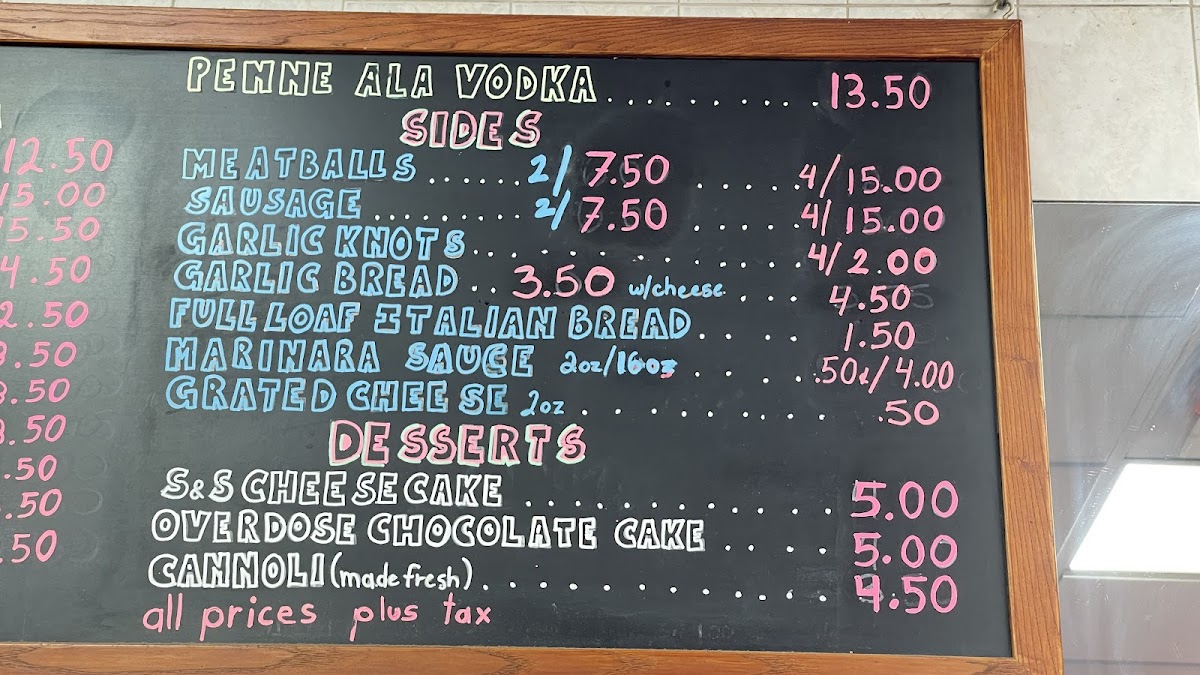 PENNE ALA VODKA.......... 13.50
SIDES
MEATBALLS ...... 2/ 7.50 ...... 4/15.00
SAUSAGE ........ 2/ 7.50 ...... 4/15.00
GARLIC KNOTS............. 4/2.00
GARLIC BREAD .. 3.50 w/cheese.... 4.50
FULL LOAF ITALIAN BREAD.... 1.50
MARINARA SAUCE 2oz/16oz..... .50¢/4.00
GRATED CHEESE 2oz ......... .50
DESSERTS
S&S CHEESECAKE ............ 5.00
OVERDOSE CHOCOLATE CAKE .... 5.00
CANNOLI (made fresh)............. 4.50
all prices plus tax
12.50
15.00
5.50
4.50
2.50
.50
.50
.50
.50
.50
.50